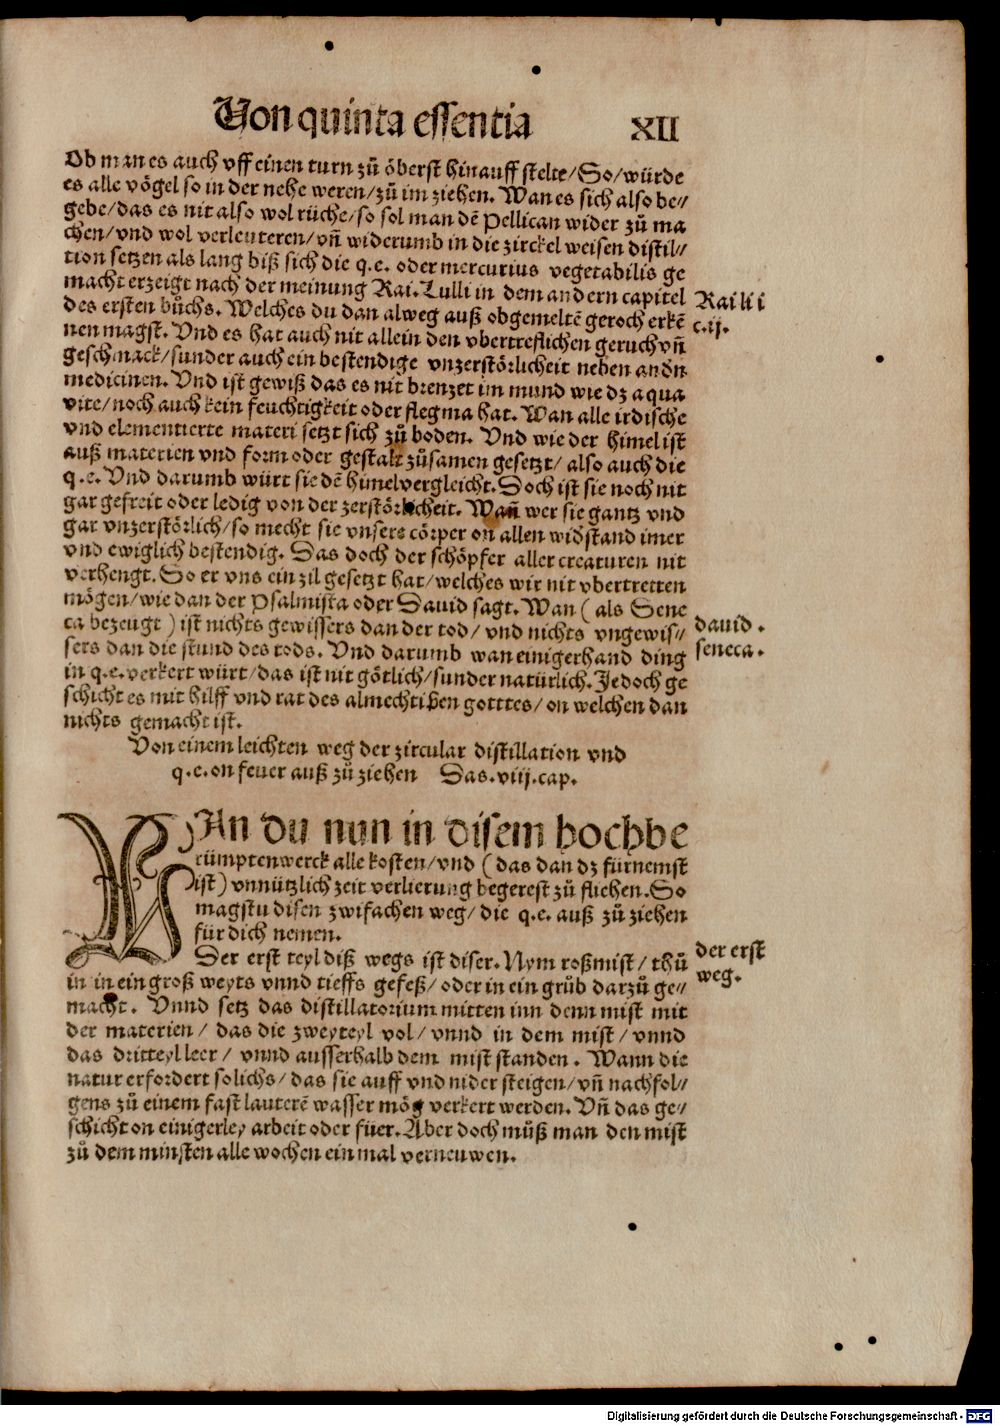 Von quinta essentia XII
Ob man es auch vff einen turn zů öberst hinauff stelte/So/würde
es alle vögel so in der nehe weren/zů im ziehen. Wan es sich also be⸗
gebe/das es nit also wol rüche/so sol man dē Pellican wider zů ma
chen/vnd wol verleuteren/vñ widerumb in die zirckel weisen distil⸗
tion setzen als lang biß sich die q.e. oder mercurius vegetabilis ge
macht erzeigt nach der meinung Rai. Lulli in dem andern capitel
des ersten bůchs. Welches du dan alweg auß obgemeltē geroch erkē
nen magst. Vnd es hat auch nit allein den vbertreflichen geruch vñ
geschmack/sunder auch ein bestendige vnzerstörlicheit neben andn
medicinen. Vnd ist gewiß das es nit brenzet im mund wie dz aqua
vite/noch auch kein feuchtigkeit oder flegma hat. Wan alle irdische
vnd elementierte materi setzt sich zů boden. Vnd wie der himel ist
auß materien vnd form oder gestalt zůsamen gesetzt/also auch die
q.e. Vnd darumb würt sie dē himel vergleicht. Doch ist sie noch nit
gar gefreit oder ledig von der zerstörlicheit. Wañ wer sie gantz vnd
gar vnzerstörlich/so mecht sie vnsere cörper on allen widstand imer
vnd ewiglich bestendig. Das doch der schöpfer aller creaturen nit
verhengt. So er vns ein zil gesetzt hat/welches wir nit vbertretten
mögen/wie dan der Psalmista oder Dauid sagt. Wan ( als Sene
ca bezeugt ) ist nichts gewissers dan der tod/ vnd nichts vngewis⸗
sers dan die stund des tods. Vnd darumb wan einigerhand ding
in q.e. verkert würt/das ist nit götlich/sunder natürlich. Jedoch ge
schicht es mit hilff vnd rat des almechtigen gotttes/on welchen dan
nichts gemacht ist.
Rai li i
c.ij.
dauid.
seneca.
Von einem leichten weg der zircular distillation vnd
q.e. on feuer auß zů ziehen Das. viij. cap.
WAn du nun in disem hochbe
rümpten werck alle kosten/vnd ( das dan dz fürnemst
ist ) vnnützlich zeit verlierung begerest zů fliehen. So
magstu disen zwifachen weg/die q.e. auß zů ziehen
für dich nemen.
Der erst teyl diß wegs ist diser. Nym roßmist/ thů
in in ein groß weyts vnnd tieffs gefeß/oder in ein grůb darzů ge⸗
macht. Vnnd setz das distillatorium mitten inn denn mist mit
der materien/ das die zweyteyl vol/ vnnd in dem mist/ vnnd
das dritteyl leer/ vnnd ausserhalb dem mist standen. Wann die
natur erfordert solichs/das sie auff vnd nider steigen/vñ nachfol⸗
gens zů einem fast lauterē wasser mög verkert werden. Vñ das ge⸗
schicht on einigerley arbeit oder füer. Aber doch můß man den mist
zů dem minsten alle wochen ein mal verneuwen.
der erst
weg.
Digitalisierung gefördert durch die Deutsche Forschungsgemeinschaft - DFG